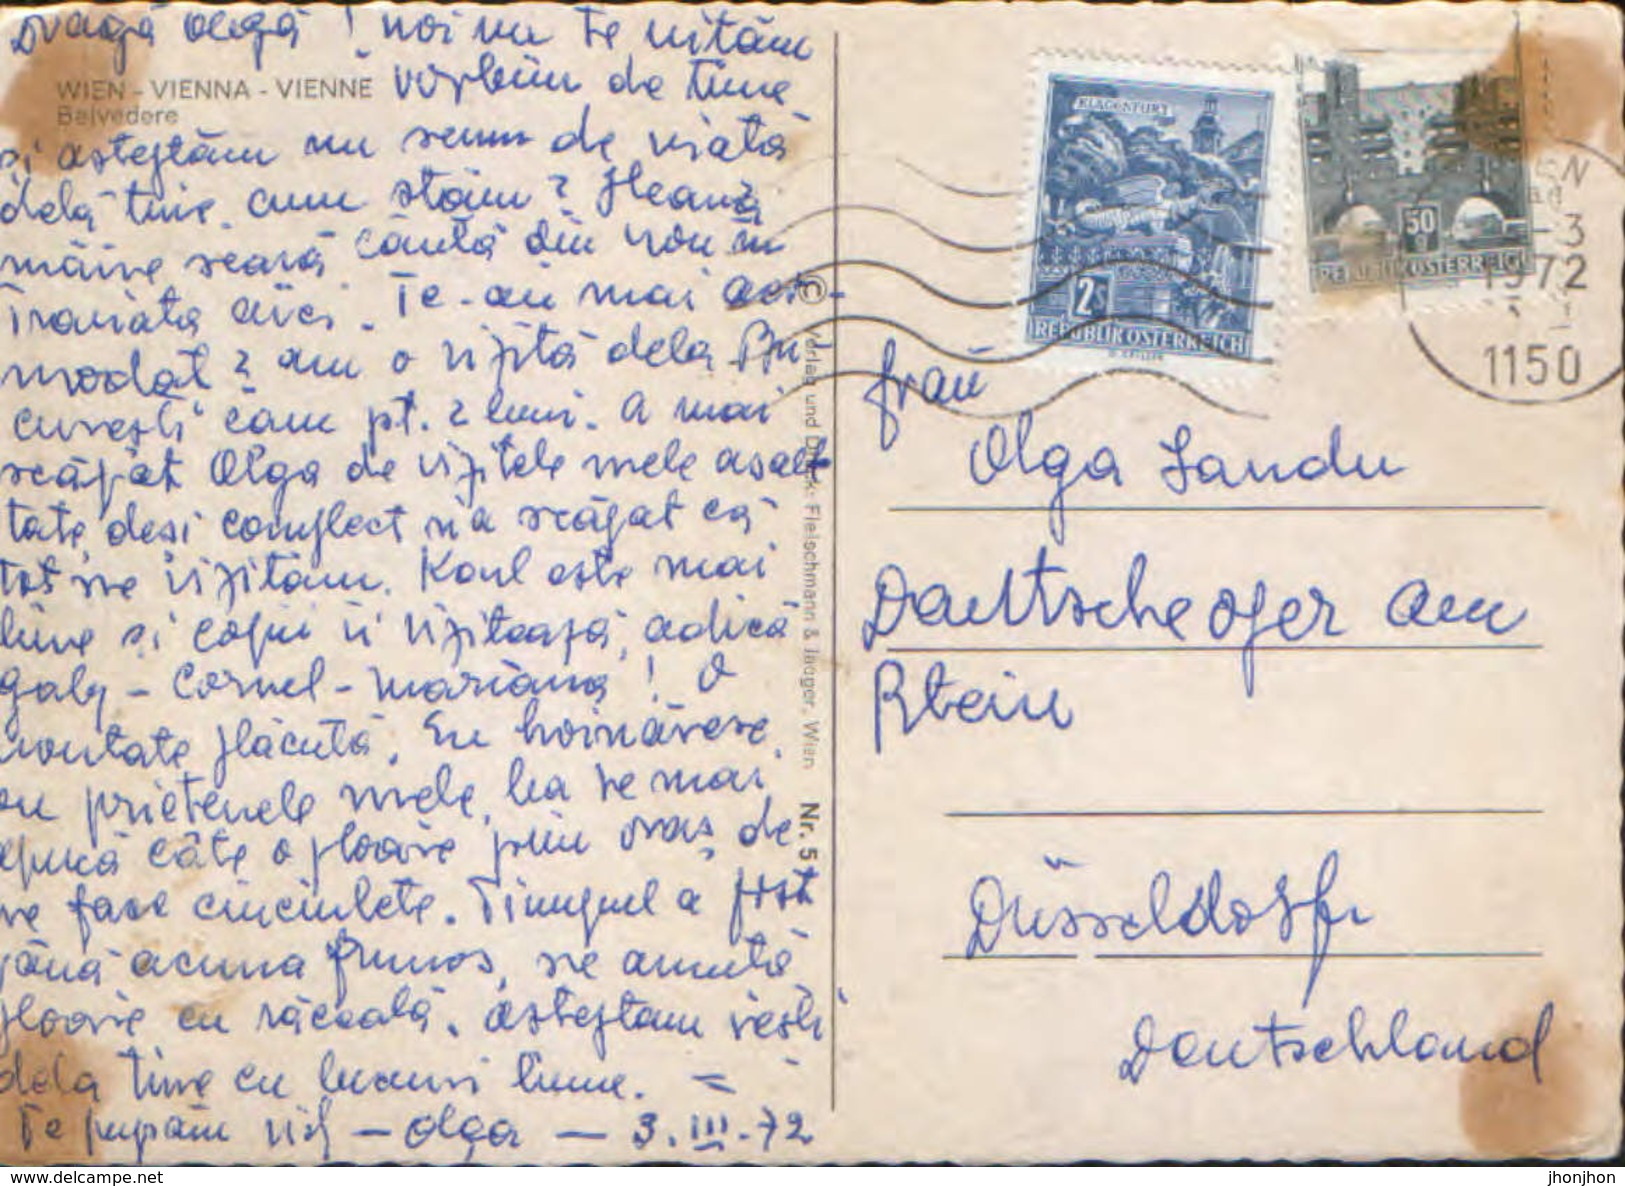 Dragă Olgă! noi nu te uităm
WIEN - VIENNA - VIENNE
Belvedere
vorbim de tine
și așteptăm un semn de viată
dela tine. cum stăm? Ileană
mâine seară cântă din nou în
Traviata aici. Te-ai mai aco-
modat? am o vizită dela Bu-
curesti cam pt. 2 luni. a mai
scăpat Olga de vizitele mele asal-
tate, desi complect n'a scăpat că
tot ne vizităm. Karl este mai
bine si copii îi vizitează, adică
Galy - Cornel - Mariana! O
noutate plăcută. Eu hoinăresc
cu prietenele mele, ba te mai
apucă câte o ploaie prin oraș de
ne face ciuciulete. Timpul a fost
până acuma frumos, ne anuntă
ploaie cu răceală. Asteptam vesti
dela tine cu lucruri bune. =
Te pupăm - Olga - 3.III.72
© Verlag und Druck: Fleischmann & Jaager, Wien Nr. 5
KLAGENFURT
2s
REPUBLIK ÖSTERREICH
50
g
REPUBLIK ÖSTERREICH
WIEN
-3
1972
1150
Frau
Olga Sandu
Dauttscheofer am
Rhein
Düsseldorf
Deutschland
www.delcampe.net
jhonjhon